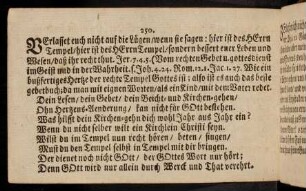 250.
VErlasset euch nicht auf die Lügen/wenn sie sagen: hier ist des HErrn
Tempel/hier ist des HErrn Tempel/sondern bessert euer Leben und
Wesen/daß ihr recht thut. Jer. 7. 4. 5. (Vom rechten Gebet u. gottesdienst
im Geist und in der Wahrheit. s. Joh. 4. 24. Rom. 12. 1. Jac. 1. 27. Wie ein
bußfertiges Hertze der rechte Tempel Gottes ist; also ist es auch das beste
gebetbuch; da man mit eignen Worten/als ein Kind/mit dem Vater redet.
Dein Lesen/dein Gebet/dein Beicht- und Kirchen-gehen/
Ohn Hertzens-Aenderung/kan nicht für GOtt bestehen.
Was hilft dein Kirchen-gehn dich wohl Jahr aus Jahr ein?
Wenn du nicht selber wilt ein Kirchlein Christi seyn.
Wilst du im Tempel nun recht hören/beten/singen/
Must du den Tempel selbst in Tempel mit dir bringen.
Der dienet noch nicht GOtt/der GOttes Wort nur hört;
Denn GOtt wird nur allein durch Werck und That verehrt.